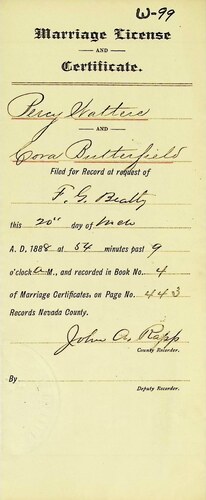 W-99
Marriage License
AND
Certificate.
Percy
AND
Cora Butterfield
Filed for Record at request of
F. G. Beatty
this 20" day of Mch
A. D, 1888 at 54 minutes past 9
o'clock A M., and recorded in Book No. 4
of Marriage Certificates, on Page No. 443
Records Nevada County.
John A. Rapp
County Recorder.
By
Deputy Recorder.